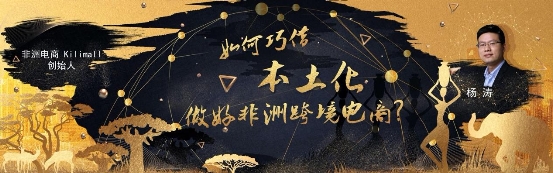 非洲电商 Kilimall
创始人
如何巧借
本土化
做好非洲跨境电商?
杨 涛